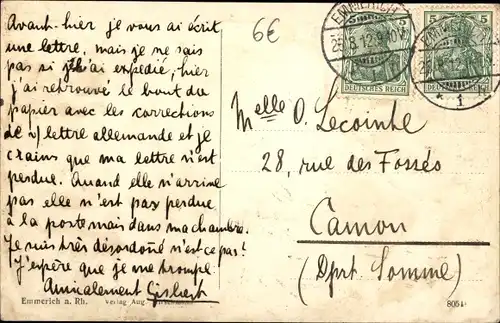 Avant-hier je vous ai écrit
une lettre, mais je ne sais
pas si je l'ai expédiée, hier
j'ai retrouvé le bout du
papier avec les corrections
de lettre allemande et je
crains que ma lettre n'est
perdue. Quand elle n'arrive
pas elle n'est pas perdue
à la poste mais dans ma chambre.
Je suis très désordoné n'est ce pas!
J'espère que je me trompe.
Amicalement Gisbert
Emmerich a. Rh. Verlag Aug.
6€
EMMERICH
5
DEUTSCHES REICH
5 5
DEUTSCHES REICH
* 1
Melle O. Lecointe
28, rue des Fossés
Camon
(Dprt. Somme)